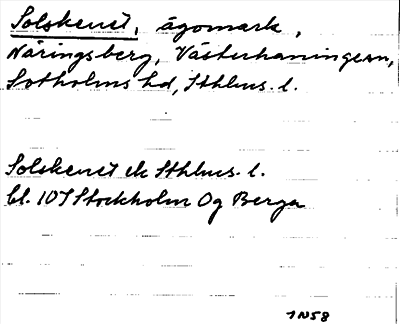 Solskenet, ägomark,
Näringsberg, Västerhaninge sn,
Sotholms hd, Sthlms. l.
Solskenet ek Sthlms. l.
bl. 107 Stockholm Og Berga
1N58